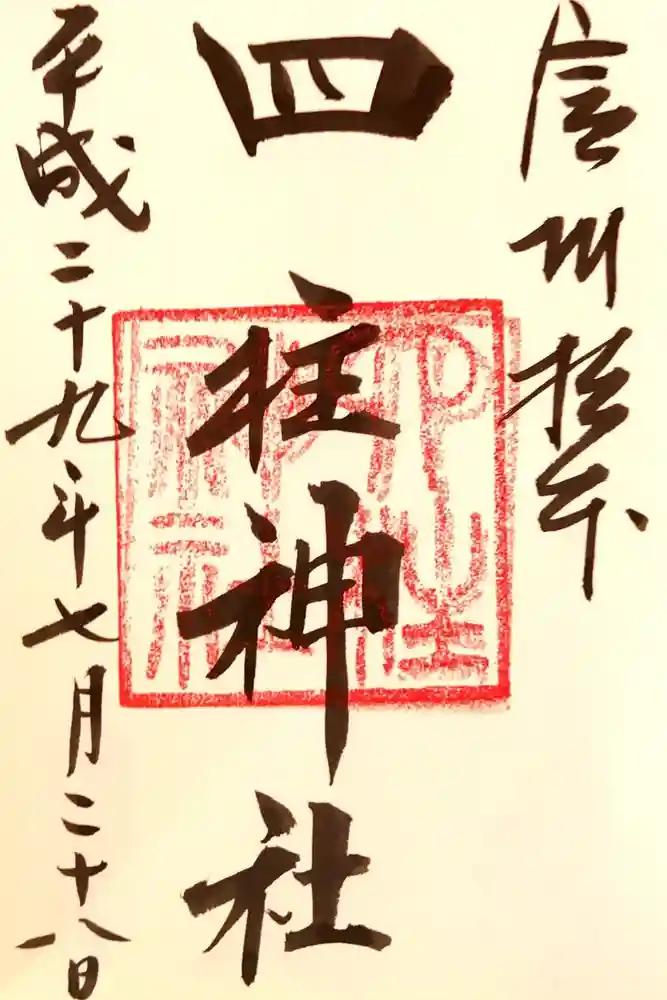 信州松本
四柱神社
四柱神社
平成二十九年七月二十八日